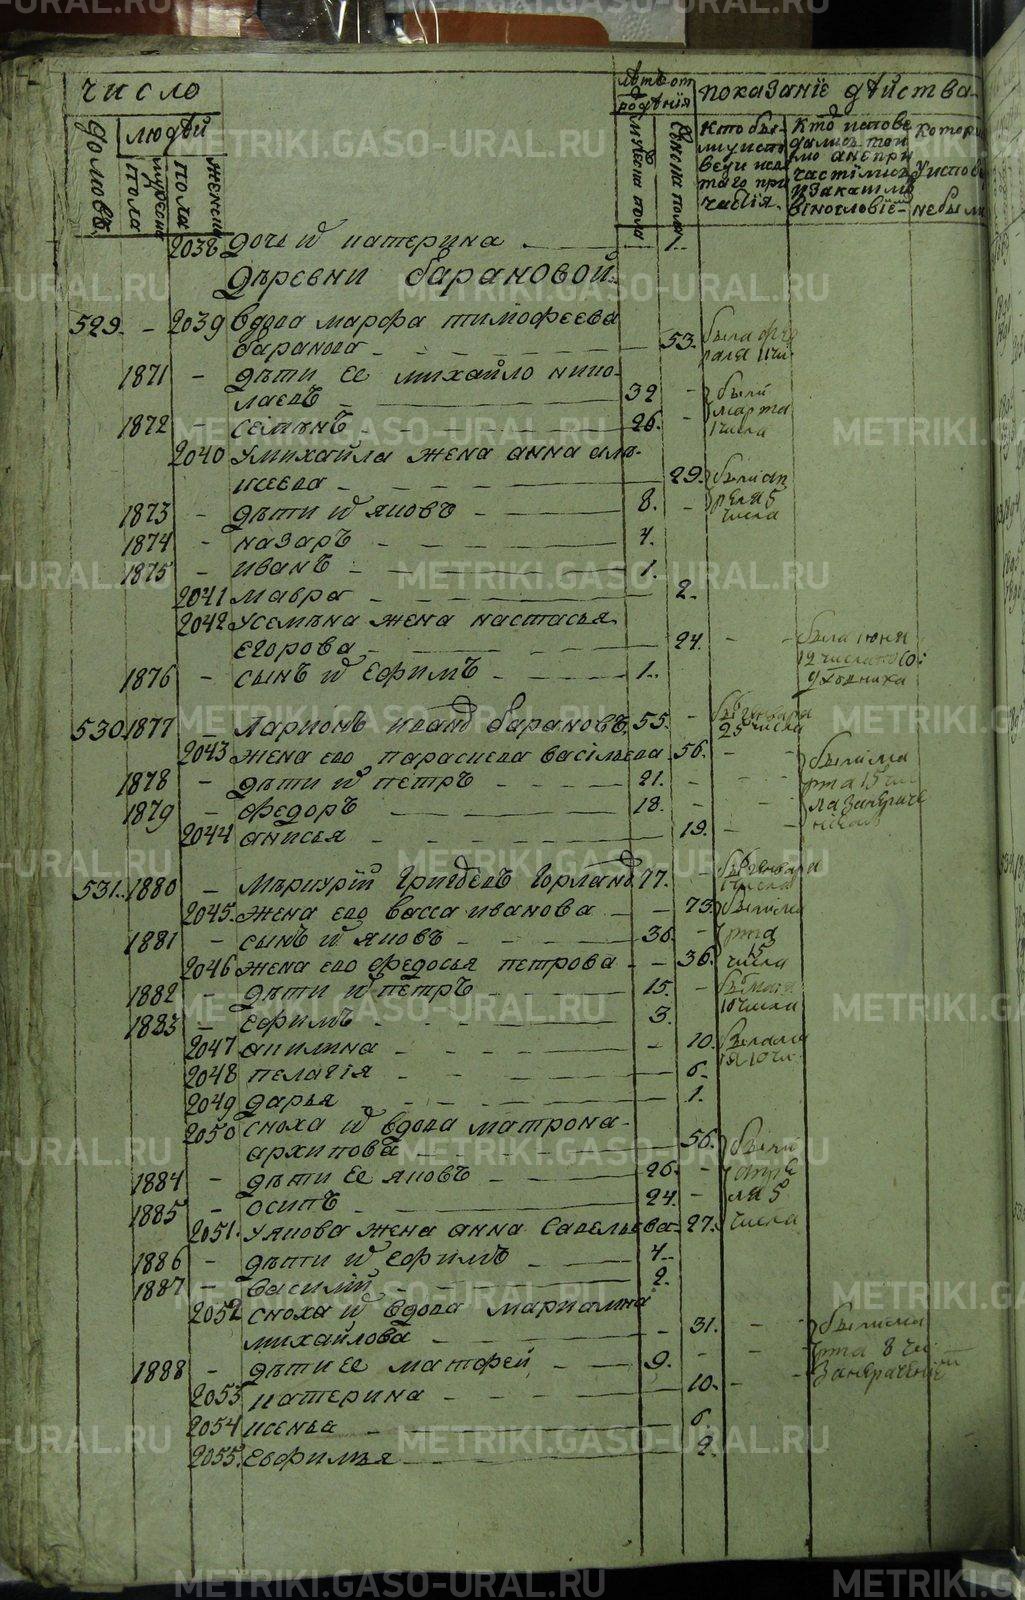 число
людей
домовъ
мужеска пола
женска пола
лѣтъ от рождѣнія
мужеска пола
женска пола
показанїе дѣйства
кто были у исповеди и святаго причастїя.
кто исповедались токмо а не причастились и за какимъ виннословїемъ
которые у исповеди не были
2038 дочь и катерина — 1.
деревни барановой.
529. – 2039 вдова марфа тимофеева
баранова — 53. была февраля 11 чи
1871 – дѣти ее михайло нико-
лаевъ — 32 были
1872 – семенъ — 26. марта 1 числа
2040 у михайла жена анна але-
ксеева — 29. были ап
1873 – дѣти и яковъ — 8. реля 5 числа
1874 – назаръ — 4.
1875 – иванъ — 1.
2041 мавра — 2.
2042 у семена жена настасья
егорова — 24. – – была июня 12 числа
1876 – сынъ и ефимъ — 1.
530. 1877 – ларионъ иванов барановъ 55. – былъ января 25 числа
2043 жена ево параскева васильева 56. – – были ма
1878 – дѣти и петръ — 21. – рта 15 чис
1879 – федоръ — 18. – ла
2044 анисья — 19. –
531. 1880 – меркурїй григорьевъ горланов 77. – былъ января числа
2045. жена ево васса иванова — 73. были ма
1881 – сынъ и яковъ — 36. – рта
2046 жена ево федосья петрова — 36. 15 числа
1882 – дѣти и петръ — 15. – былъ мая 10 числа
1883 – ефимъ — 3.
2047 акилина — 10. была мая 10 чи
2048 пелагїя — 6.
2049 дарья — 1.
2050 сноха и вдова матрона
архипова — 56. были
1884 – дѣти ее яковъ — 26. – апре
1885 – осипъ — 24. – ля 5
2051. у якова жена анна савельева 27. числа
1886 – дѣти и ефимъ — 4.
1887 – василий — 2.
2052 сноха и вдова мариамна
михайлова — 31. – были ма
1888 – дѣти ее матфей — 9. – рта 8 чис
2053 катерина — 10. –
2054 ксенья — 6.
2055. евфимья — 2.
METRIKI.GASO-URAL.RU